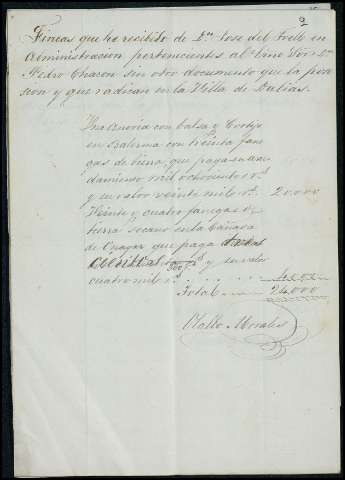 2
Fincas que he recibido de Dn. Jose del Trell en
Administracion pertenecientes al Ilmo Sor. Dn.
Pedro Chacon sin otro documento que la pose
sion y que radican en la Villa de Dalias.
Una anoria con balsa y Cortijo
en Balerma con treinta fane
gas de tierra, que paga en arren
damiento mil ochocientos rs.
y su valor veinte mil rs. 20.000
Veinte y cuatro fanegas de
tierra secano en la Cañada
de Onayar que paga
300 rs y su valor
cuatro mil rs. 4.000
Total 24.000
Morales